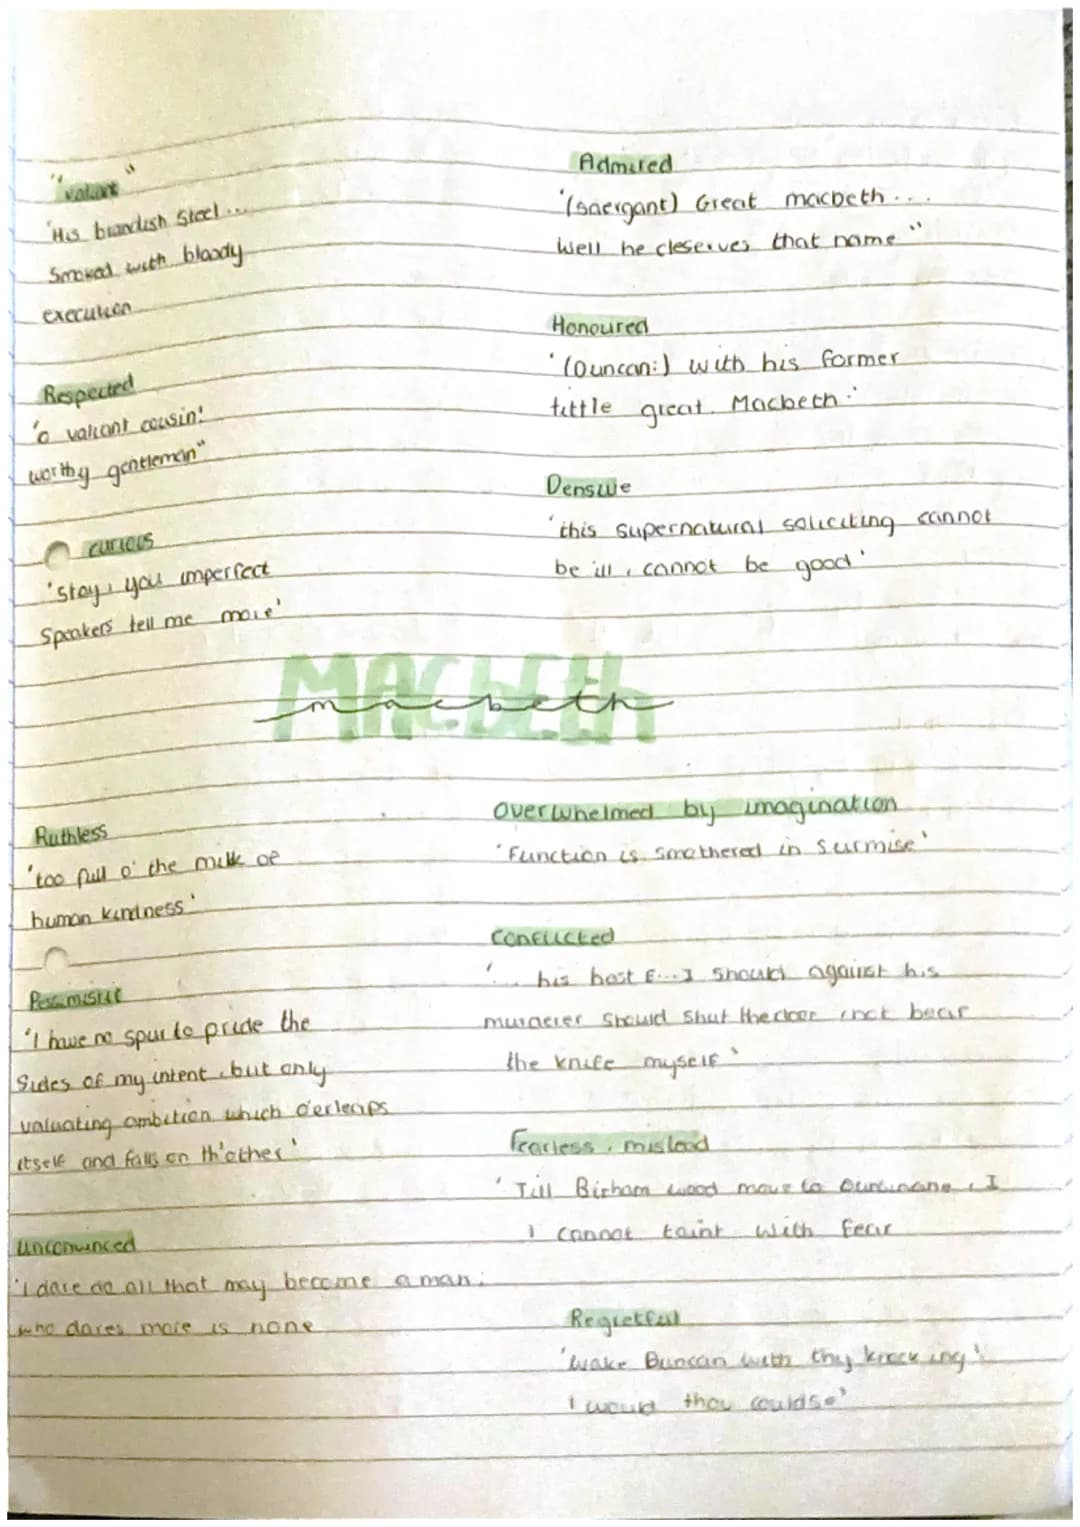 "valiant"
'His brandish Steel...
Smoked with bloody
execution
Respected
'o valiant cousin!
worthy gentleman"
curious
'stay, you imperfect
Speakers tell me more'
Admired
'(saergant) Great macbeth...
Well he deserves that name"
Honoured
'(Duncan:) with his former
tittle great Macbeth.'
Densive
'this supernatural soliciting cannot
be ill, cannot be good'
MACbEth
macbeth
Ruthless
'too full o' the milk of
human kindness'
Pessimistic
'I have no spur to pride the
Sides of my intent, but only
valuating ambition which o'erleaps
itself and falls on th'other'
Unconvinced
'I dare do all that may become a man;
who dares more is none
Overwhelmed by imagination
'Function is smothered in Surmise'
Conflicted
'... his host E...I should against his
murderer should shut the door, not bear
the knife myself'
Fearless, mislead
'Till Birham wood move to Dunsinane, I
I cannot taint with fear
Regretful
'wake Duncan with thy knocking!
I would thou couldse'